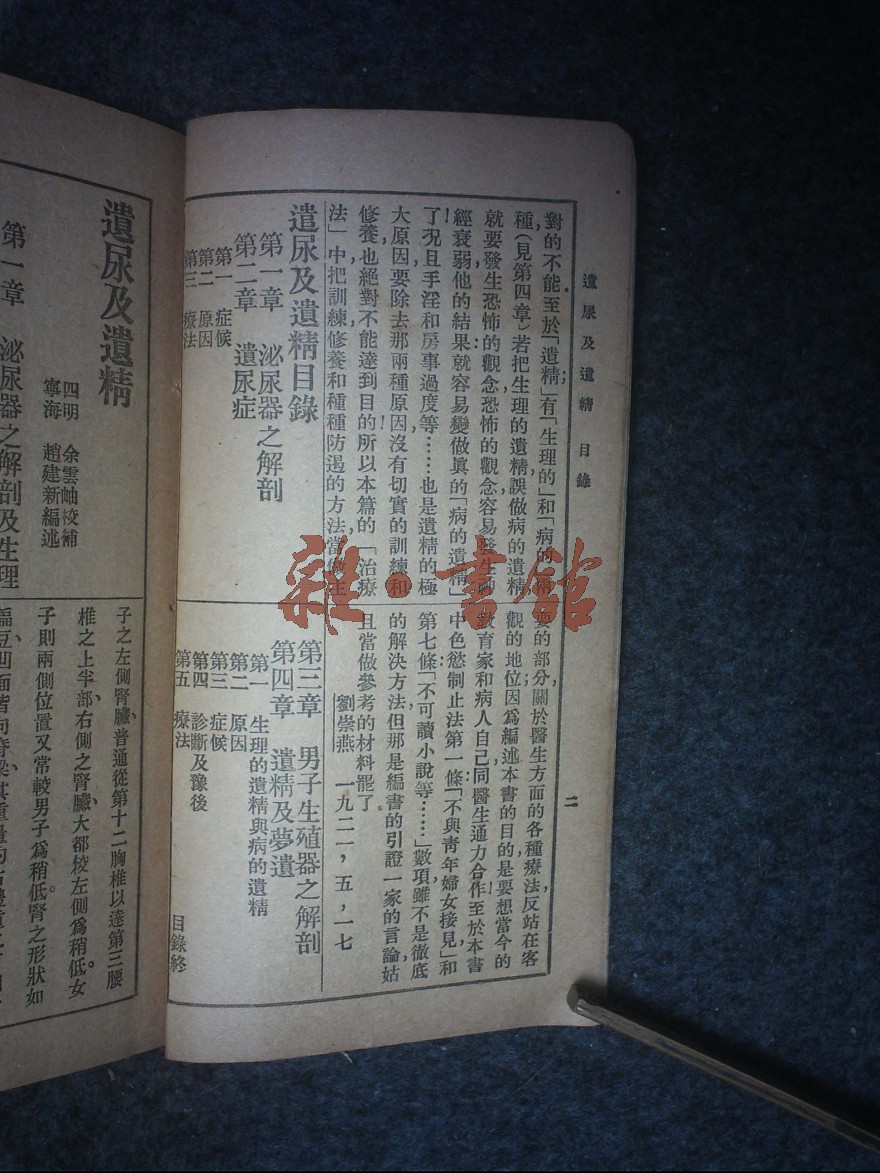 遺尿及遺精 目錄
二
對的不能至於「遺精」有「生理的」和「病的」兩
種(見第四章)若把生理的遺精誤做病的遺精,
就要發生恐怖的觀念恐怖的觀念容易發生神
經衰弱他的結果就容易變做眞的「病的遺精」
了况且手淫和房事過度等……也是遺精的極
大原因要除去那兩種原因沒有切實的訓練和
修養也絕對不能達到目的所以本篇的「治療
法」中把訓練修養和種種防遏的方法當做主
要的部分,關於醫生方面的各種療法反站在客
觀的地位因爲編述本書的目的是要想當今的
教育家和病人自己同醫生通力合作至於本書
中色慾制止法第一條「不與靑年婦女接見」和
第七條「不可讀小說等……」數項雖不是徹底
的解決方法但那是編書的引證一家的言論姑
且當做參考的材料罷了。
劉崇燕 一九二一,五,一七
遺尿及遺精目錄
第一章 泌尿器之解剖
第二章 遺尿症
第一 症候
第二 原因
第三 療法
第三章 男子生殖器之解剖
第四章 遺精及夢遺
第一 生理的遺精與病的遺精
第二 原因
第三 症候
第四 診斷及豫後
第五 療法
目錄終
遺尿及遺精
四明 余雲岫校補
寧海 趙建新編述
第一章 泌尿器之解剖及生理
子之左側腎臟,普通從第十二胸椎以達第三腰
椎之上半部,右側之腎臟,大都較左側爲稍低。女
子則兩側位置又常較男子爲稍低。腎之形狀如
雜·書館